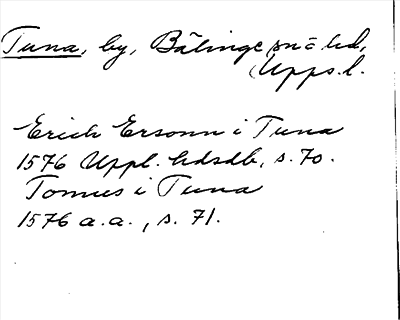 Tuna, by, Bälinge sn = hd,
Upps. l.
Erich Ersonn i Tuna
1576 Uppl. hdsdb, s. 70.
Tomus i Tuna
1576 a.a., s. 71.